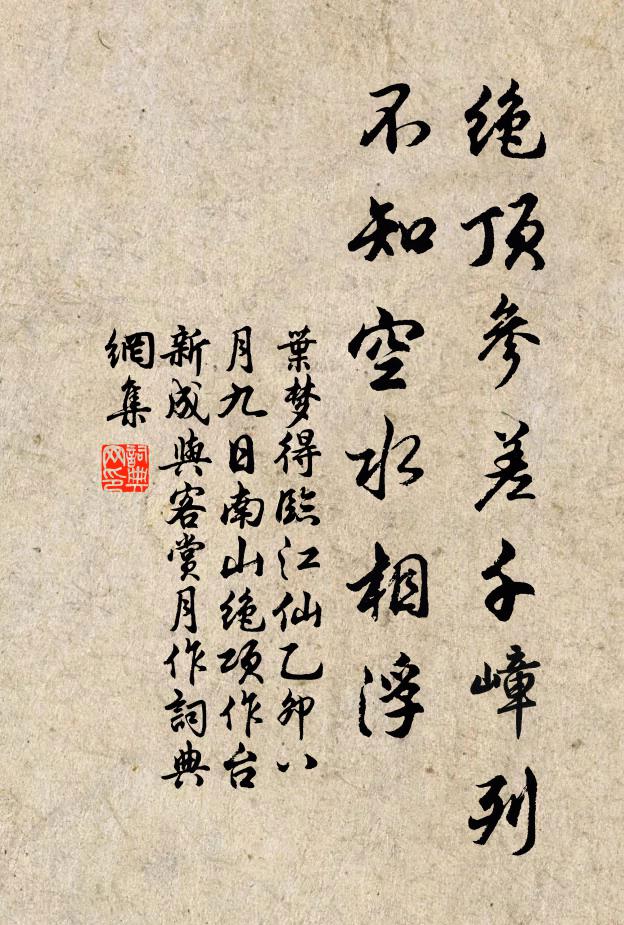 绝顶参差千嶂列
不知空水相浮
葉梦得臨江仙乙卯八
月九日南山绝项作台
新成與客賞月作詞典
網集
詞典
网印